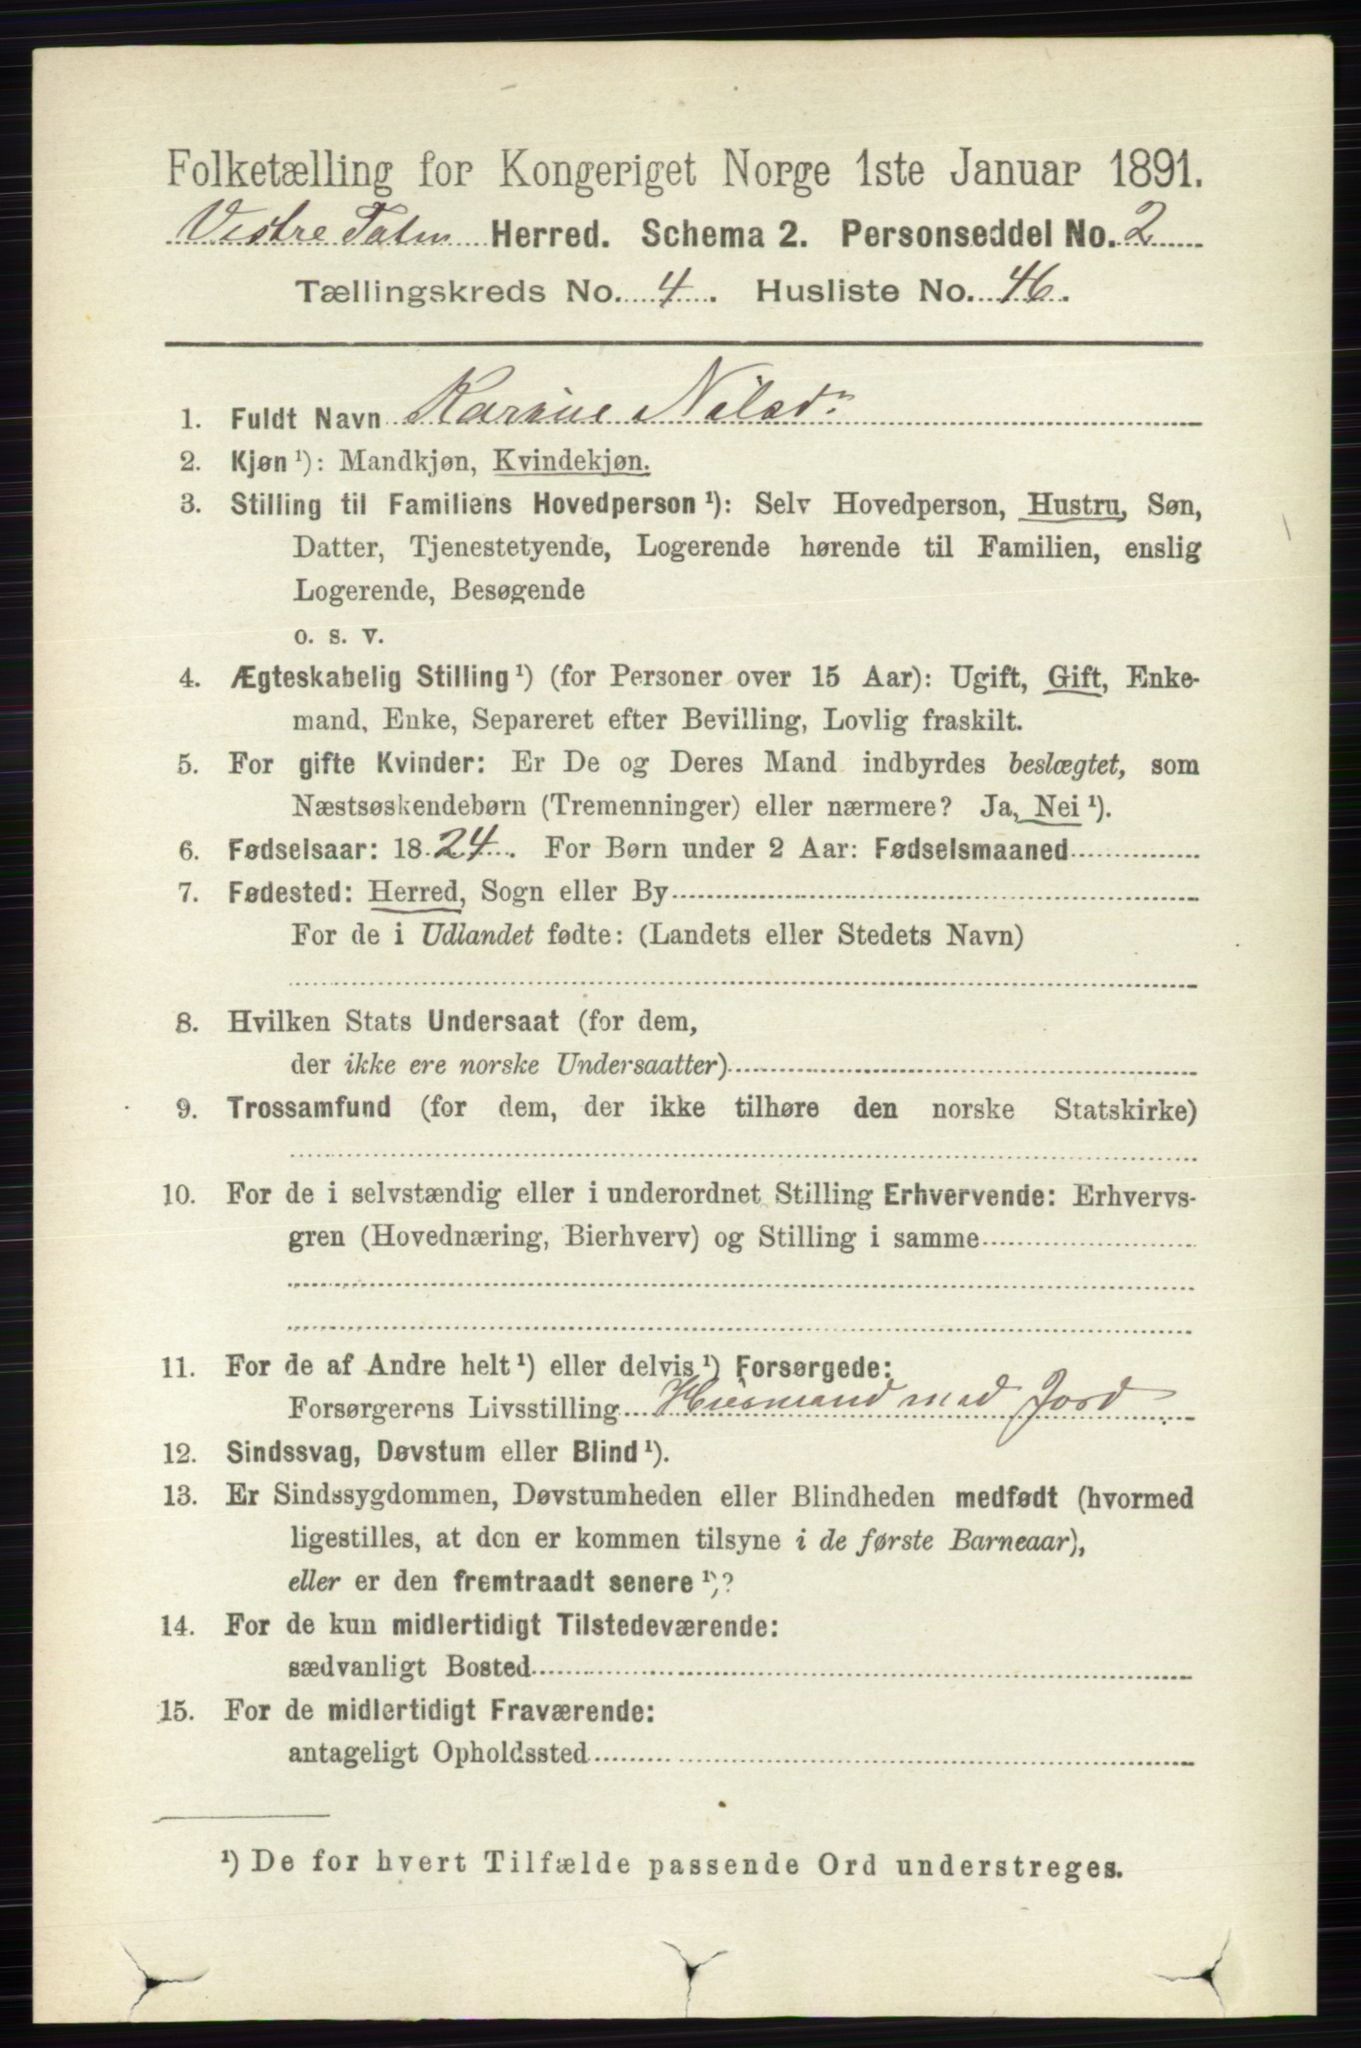 Folketælling for Kongeriget Norge 1ste Januar 1891.
Vestre Toten Herred. Schema 2. Personseddel No. 2
Tællingskreds No. 4. Husliste No. 46.
1. Fuldt Navn Karine Nilsdr
2. Kjøn ¹): Mandkjøn, Kvindekjøn.
3. Stilling til Familiens Hovedperson ¹): Selv Hovedperson, Hustru, Søn,
Datter, Tjenestetyende, Logerende hørende til Familien, enslig
Logerende, Besøgende
o. s. v.
4. Ægteskabelig Stilling ¹) (for Personer over 15 Aar): Ugift, Gift, Enke-
mand, Enke, Separeret efter Bevilling, Lovlig fraskilt.
5. For gifte Kvinder: Er De og Deres Mand indbyrdes beslægtet, som
Næstsøskendebørn (Tremenninger) eller nærmere? Ja, Nei ¹).
6. Fødselsaar: 1824. For Børn under 2 Aar: Fødselsmaaned
7. Fødested: Herred, Sogn eller By
For de i Udlandet fødte: (Landets eller Stedets Navn)
8. Hvilken Stats Undersaat (for dem,
der ikke ere norske Undersaatter)
9. Trossamfund (for dem, der ikke tilhøre den norske Statskirke)
10. For de i selvstændig eller i underordnet Stilling Erhvervende: Erhvervs-
gren (Hovednæring, Bierhverv) og Stilling i samme
11. For de af Andre helt ¹) eller delvis ¹) Forsørgede:
Forsørgerens Livsstilling Husmand med Jord
12. Sindssvag, Døvstum eller Blind ¹).
13. Er Sindssygdommen, Døvstumheden eller Blindheden medfødt (hvormed
ligestilles, at den er kommen tilsyne i de første Barneaar),
eller er den fremtraadt senere ¹)?
14. For de kun midlertidigt Tilstedeværende:
sædvanligt Bosted
15. For de midlertidigt Fraværende:
antageligt Opholdssted
¹) De for hvert Tilfælde passende Ord understreges.